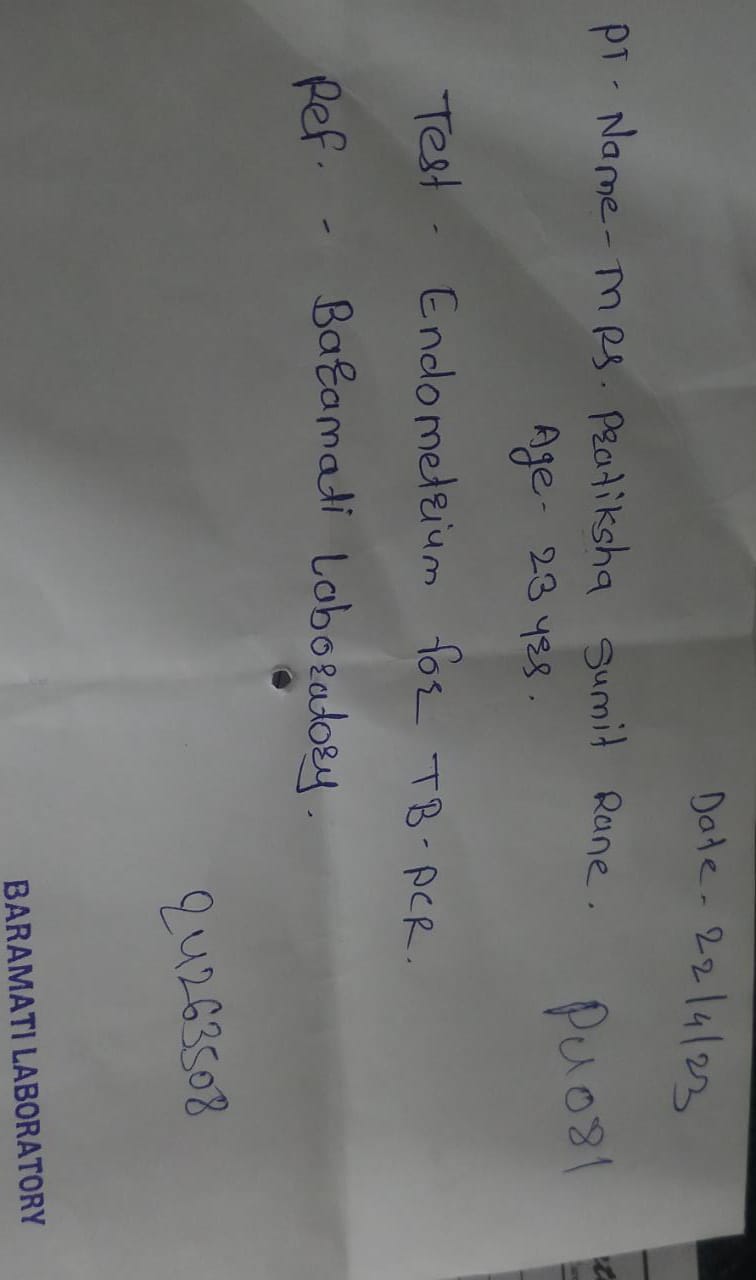 Date - 22/4/23
PT - Name - Mrs. Pratiksha Sumit Rane.
PU081
Age - 23 yrs.
Test - Endometrium for TB-PCR.
Ref. - Baramati Laboratory.
24263508
BARAMATI LABORATORY